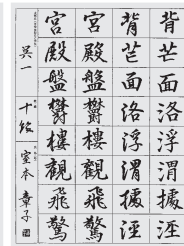 背芒面洛浮渭據涇
背芒面洛浮渭據涇
宮殿盤欝樓觀飛驚
宮殿盤欝樓觀飛驚
十級